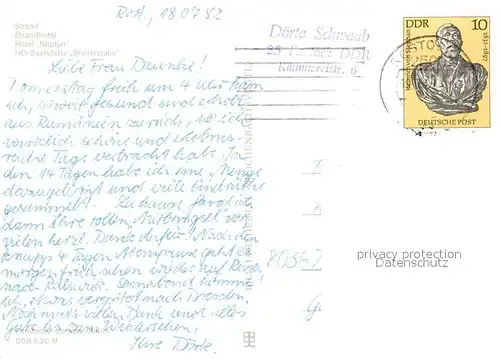 Strand
Strandhotel
Hotel „Neptun“
HO-Gaststätte „Broilerstube“
Rost., 18.07.82
Dörte Schwaab
DDR
Kammereistr. 6
DDR 10
Heinrich von Stephan 1831-1897
DEUTSCHE POST
Liebe Frau
Donnerstag früh um 4 Uhr kam
ich, gesund und erholt
aus Rumänien zurück, wo ich
wirklich schöne und erlebnis-
reiche Tage verbracht habe. In
den 14 Tagen habe ich eine Menge
und viele Eindrücke
gesammelt. Zu Hause fand ich
dann Ihre vor,
vielen herzl. Dank dafür! Nach den
knapp 4 Tagen Atempause geht es
morgen früh schon wieder auf Reise,
nach Sonnabend komme
ich, etwas verspätet nach Dresden.
Nochmals vielen Dank und alles
Gute bis zum Wiedersehen,
Ihre Dörte.
8036
privacy protection
Datenschutz
DDR 0,20 M